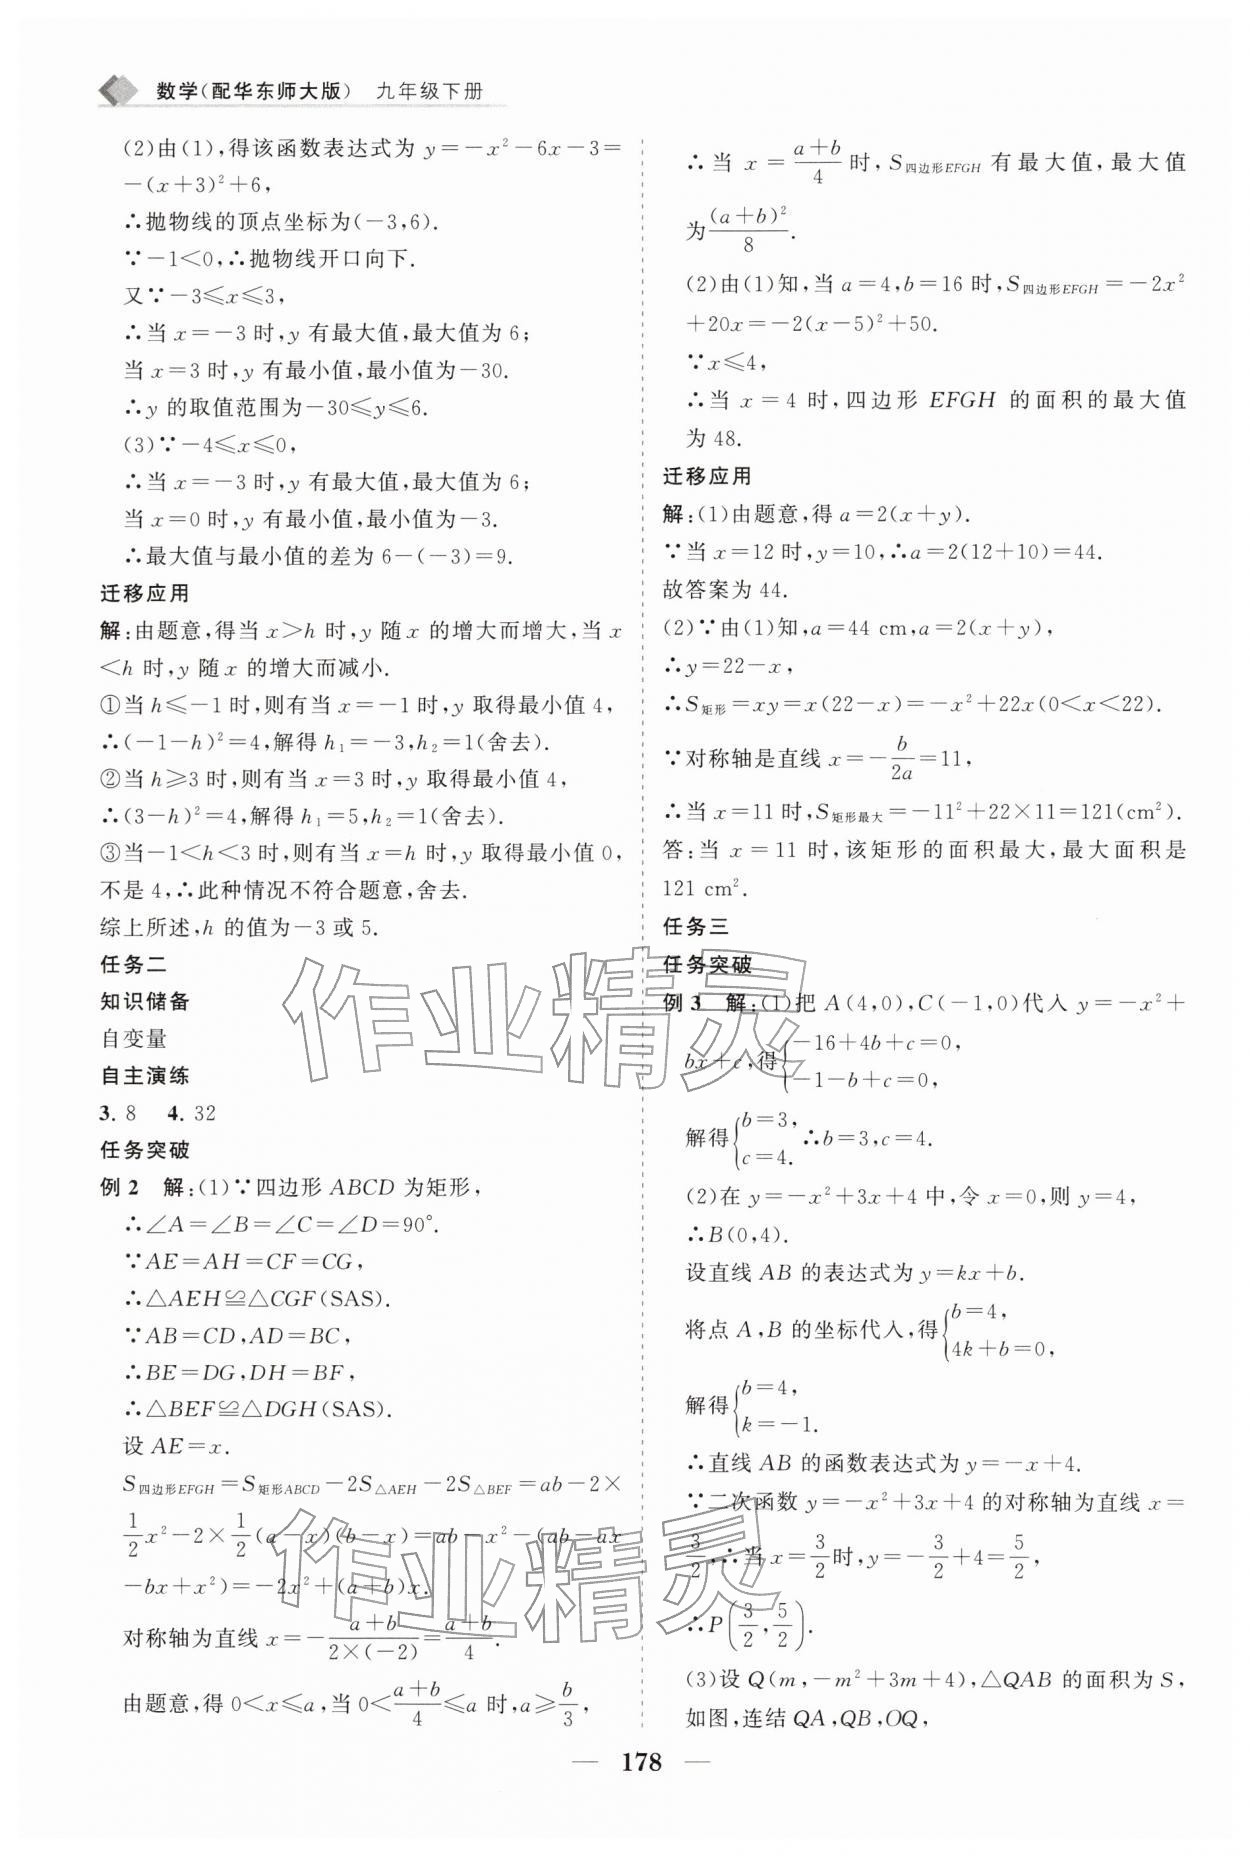 数学(配华东师大版) 九年级下册
(2)由(1),得该函数表达式为 y=-x²-6x-3=
-(x+3)²+6,
∴抛物线的顶点坐标为(-3,6).
∵-1<0,∴抛物线开口向下.
又∵-3≤x≤3,
∴当 x=-3 时,y 有最大值,最大值为 6;
当 x=3 时,y 有最小值,最小值为-30.
∴y 的取值范围为-30≤y≤6.
(3)∵-4≤x≤0,
∴当 x=-3 时,y 有最大值,最大值为 6;
当 x=0 时,y 有最小值,最小值为-3.
∴最大值与最小值的差为 6-(-3)=9.
迁移应用
解:由题意,得当 x>h 时,y 随 x 的增大而增大,当 x
<h 时,y 随 x 的增大而减小.
①当 h≤-1 时,则有当 x=-1 时,y 取得最小值 4,
∴(-1-h)²=4,解得 h₁=-3,h₂=1(舍去).
②当 h≥3 时,则有当 x=3 时,y 取得最小值 4,
∴(3-h)²=4,解得 h₁=5,h₂=1(舍去).
③当-1<h<3 时,则有当 x=h 时,y 取得最小值 0,
不是 4,∴此种情况不符合题意,舍去.
综上所述,h 的值为-3 或 5.
任务二
知识储备
自变量
自主演练
3. 8 4. 32
任务突破
例 2 解:(1)∵四边形 ABCD 为矩形,
∴∠A=∠B=∠C=∠D=90°.
∵AE=AH=CF=CG,
∴△AEH≌△CGF(SAS).
∵AB=CD,AD=BC,
∴BE=DG,DH=BF,
∴△BEF≌△DGH(SAS).
设 AE=x.
S四边形EFGH=S矩形ABCD-2S△AEH-2S△BEF=ab-2×
1/2 x²-2×1/2(a-x)(b-x)=ab-x²-(ab-ax
-bx+x²)=-2x²+(a+b)x.
对称轴为直线 x=-(a+b)/(2×(-2))=(a+b)/4.
由题意,得 0<x≤a,当 0<(a+b)/4≤a 时,a≥b/3,
∴当 x=(a+b)/4 时,S四边形EFGH 有最大值,最大值
为(a+b)²/8.
(2)由(1)知,当 a=4,b=16 时,S四边形EFGH=-2x²
+20x=-2(x-5)²+50.
∵x≤4,
∴当 x=4 时,四边形 EFGH 的面积的最大值
为 48.
迁移应用
解:(1)由题意,得 a=2(x+y).
∵当 x=12 时,y=10,∴a=2(12+10)=44.
故答案为 44.
(2)∵由(1)知,a=44 cm,a=2(x+y),
∴y=22-x,
∴S矩形=xy=x(22-x)=-x²+22x(0<x<22).
∵对称轴是直线 x=-b/2a=11,
∴当 x=11 时,S矩形最大=-11²+22×11=121(cm²).
答:当 x=11 时,该矩形的面积最大,最大面积是
121 cm².
任务三
任务突破
例 3 解:(1)把 A(4,0),C(-1,0)代入 y=-x²+
bx+c,得{-16+4b+c=0,
-1-b+c=0,
解得{b=3,
c=4. ∴b=3,c=4.
(2)在 y=-x²+3x+4 中,令 x=0,则 y=4,
∴B(0,4).
设直线 AB 的表达式为 y=kx+b.
将点 A,B 的坐标代入,得{b=4,
4k+b=0,
解得{b=4,
k=-1.
∴直线 AB 的函数表达式为 y=-x+4.
∵二次函数 y=-x²+3x+4 的对称轴为直线 x=
3/2,∴当 x=3/2时,y=-3/2+4=5/2,
∴P(3/2,5/2).
(3)设 Q(m,-m²+3m+4),△QAB 的面积为 S,
如图,连结 QA,QB,OQ,
— 178 —
作业精灵
作业精灵